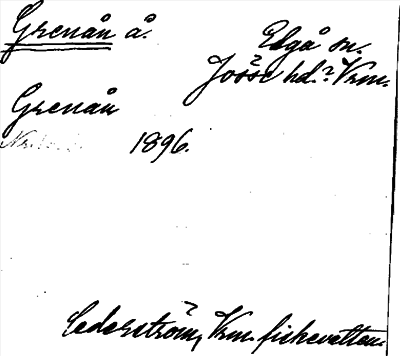 Grenån å.
Edgå sn.
Jösse hd. Vrm.
Grenån
1896.
Cederström, Vrm. fiskevatten.